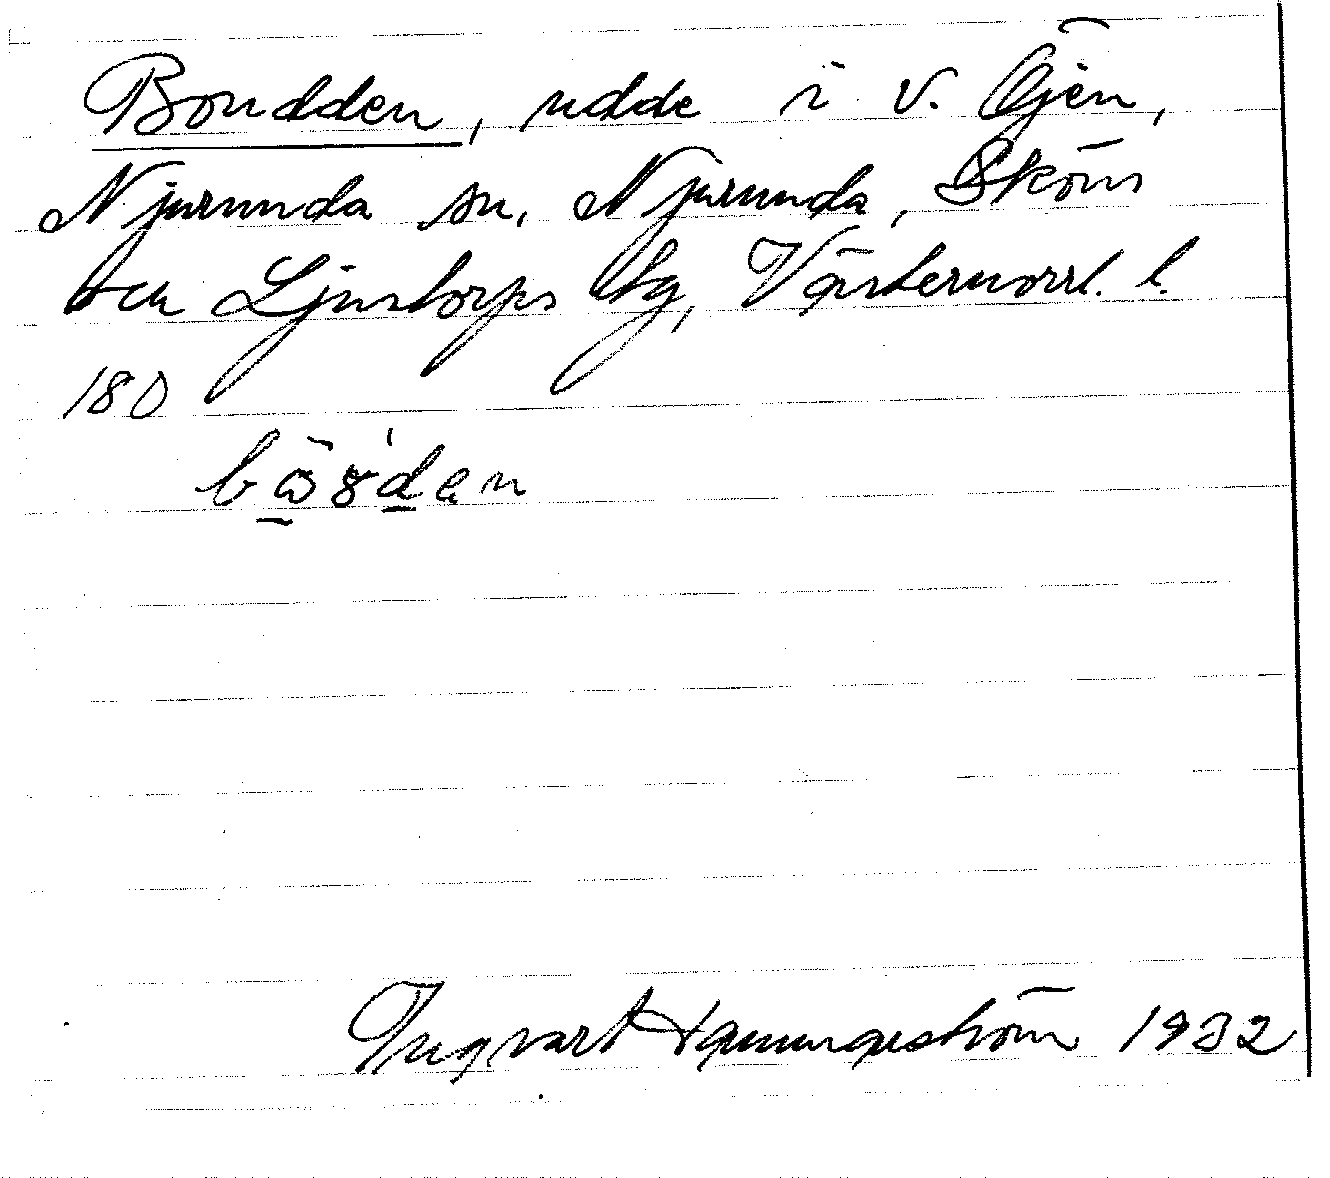 Boudden, udde i V. Öjen,
Njurunda sn, Njurunda, Sköns
och Ljustorps tg, Västernorrl. l.
180
Ingvart Hammarström 1932